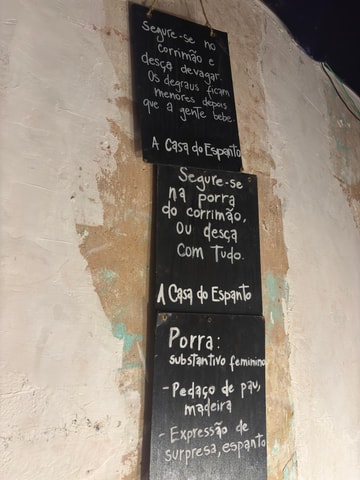 Segure-se no
corrimão e
desça devagar.
Os degraus ficam
menores depois
que a gente bebe.
A Casa do Espanto
Segure-se
na porra
do corrimão,
ou desça
com tudo.
A Casa do Espanto
Porra:
substantivo feminino
- Pedaço de pau,
madeira
- Expressão de
surpresa, espanto